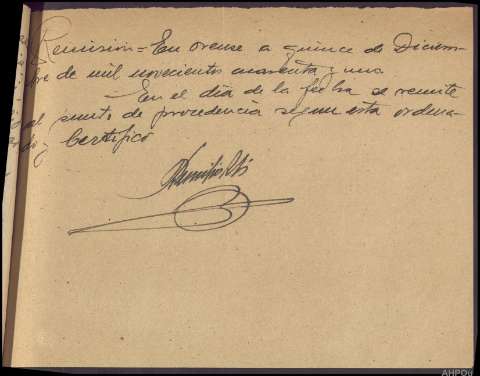 Remision = En orense a quince de Diciem-
bre de mil novecientos cuarenta y uno
En el dia de la fecha se remite
al punto de procedencia segun esta ordena-
do; Certifico
AHPOu